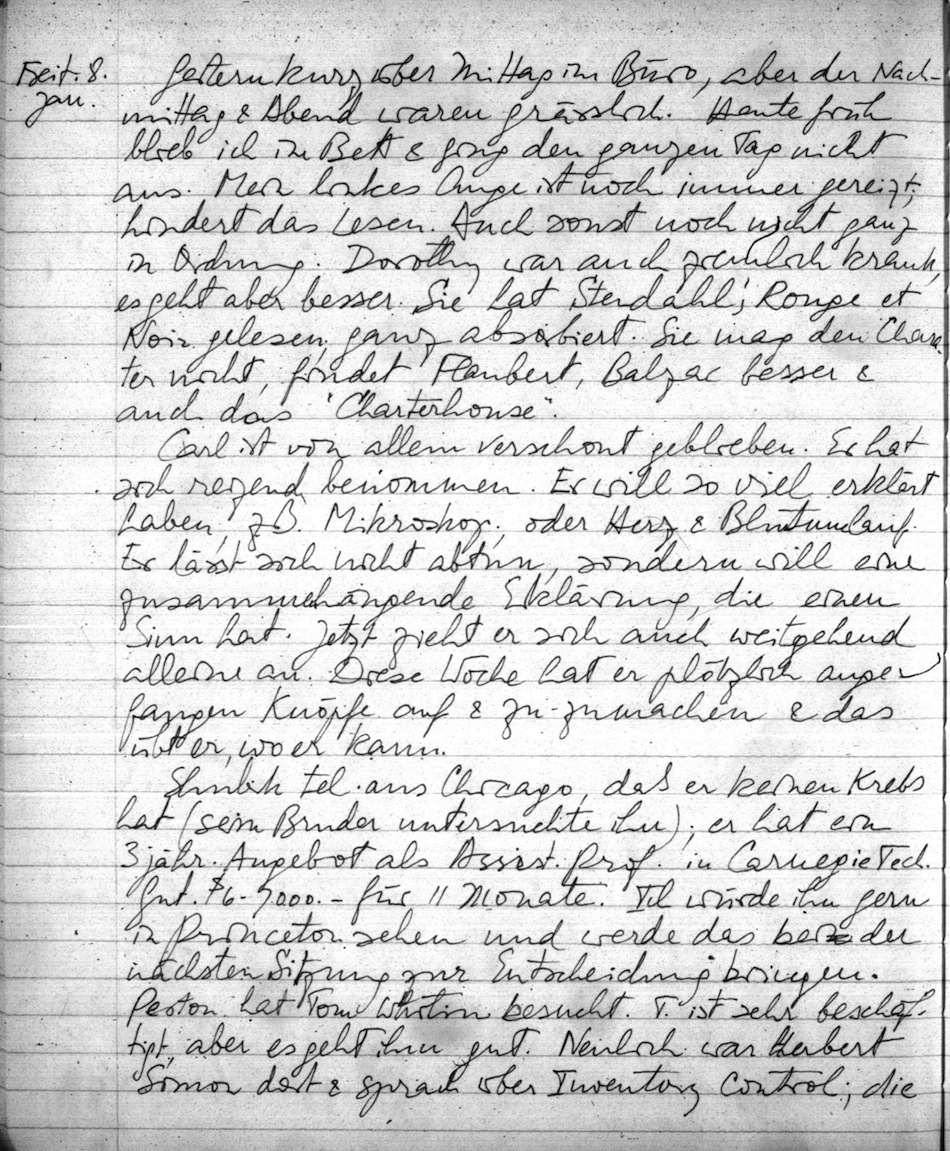 Freit. 8. Gestern kurz über Mittag im Büro, aber der Nach-
Jan. mittag & Abend waren grässlich. Heute früh
blieb ich im Bett & ging den ganzen Tag nicht
aus. Mein linkes Auge ist noch immer gereizt,
hindert das Lesen. Auch sonst noch nicht ganz
in Ordnung. Dorothy war auch ziemlich krank,
es geht aber besser. Sie hat Stendahl's Rouge et
Noir gelesen, ganz absorbiert. Sie mag den Charak
ter nicht, findet Flaubert, Balzac besser &
auch das "Charterhouse".
Carl ist von allem verschont geblieben. Er hat
sich reizend benommen. Er will so viel erklärt
haben, z.B. Mikroskop, oder Herz & Blutumlauf.
Er lässt sich nicht abtun, sondern will eine
zusammenhängende Erklärung, die einen
Sinn hat. Jetzt zieht er sich auch weitgehend
alleine an. Diese Woche hat er plötzlich ange
fangen Knöpfe auf & zu-zumachen & das
übt er, wo er kann.
Shubik tel. aus Chicago, daß er keinen Krebs
hat (sein Bruder untersuchte ihn); er hat ein
3 jähr. Angebot als Assist. Prof. in Carnegie Tech.
Gut. $6-7000.- für 11 Monate. Ich würde ihn gern
in Princeton sehen und werde das bei der
nächsten Sitzung zur Entscheidung bringen.
Peston hat Tom Whitin besucht. T. ist sehr beschäf-
tigt, aber es geht ihm gut. Neulich war Herbert
Simon dort & sprach über Inventory Control; die